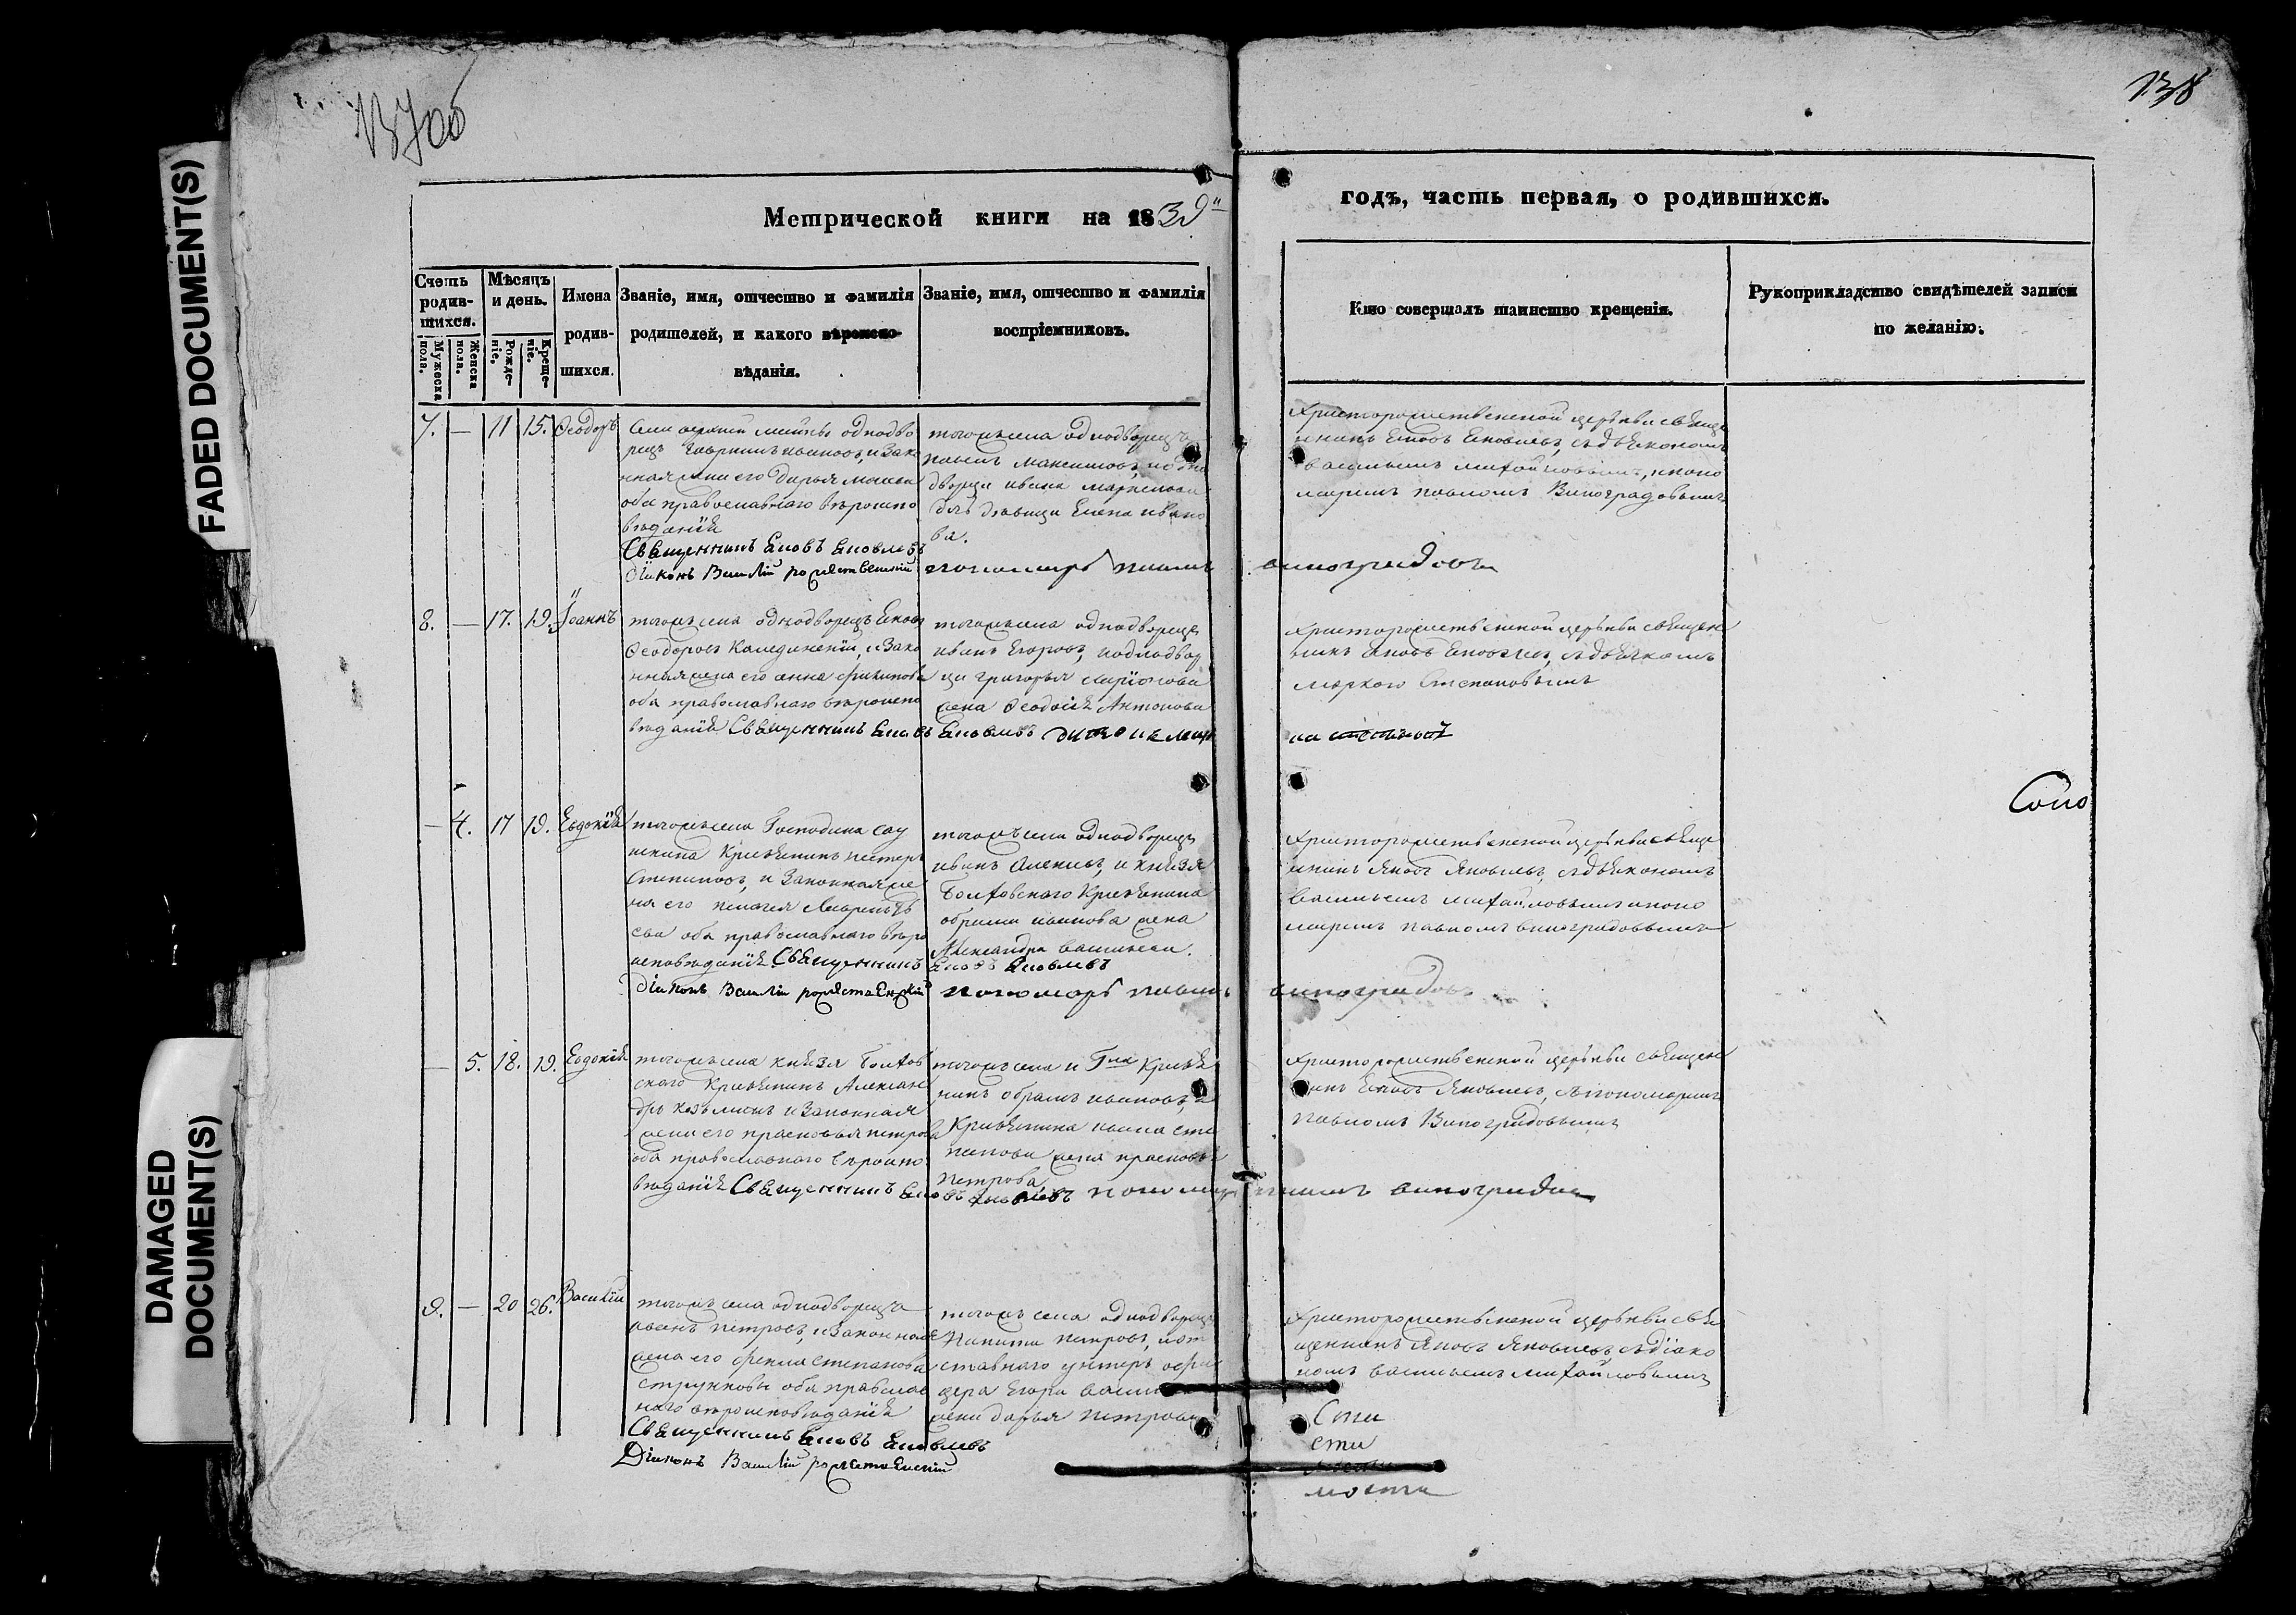 FADED DOCUMENT(S)
DAMAGED
DOCUMENT(S)
138
Метрической книги на 1839
годъ, часть первая, о родившихся.
Счетъ
родив-
шихся.
Мужеска
пола.
Женска
пола.
Мѣсяцъ
и день.
Рожде-
ніе.
Креще-
ніе.
Имена
родив-
шихся.
Званіе, имя, отчество и фамилія
родителей, и какого вѣроиспо-
вѣданія.
Званіе, имя, отчество и фамилія
воспріемниковъ.
Кто совершалъ таинство крещенія.
Рукоприкладство свидѣтелей записи
по желанію.
7. — 11 15. Ѳеодоръ
однодво
рецъ Гаврiилъ ивановъ, и зако
нная жена его Дарья
оба православнаго вѣроиспо
вѣданія
Священникъ Яковъ Яковлевъ
Діаконъ Василій рождественскій
тогожъ села однодворецъ
павелъ максимовъ, и одно
дворца ивана
дочь дѣвица Елена ивано
ва.
пономарь павелъ виноградовъ
Христорождественской церькви свяще
нникъ Яковъ Яковлевъ, съ дьякономъ
васильемъ михайловымъ, и поно
маремъ павломъ Виноградовымъ
8. — 17. 19. Іоаннъ
тогожъ села однодворецъ Яковъ
Ѳеодоровъ, и зако
нная жена его анна филипова
оба православнаго вѣроиспо
вѣданія Священникъ Яковъ Яковлевъ
тогожъ села однодворецъ
иванъ Егоровъ, и однодвор
ца григорья
жена Ѳеодосія Антонова
Христорождественской церькви священ
никъ Яковъ Яковлевъ, съ дьячкомъ
маркомъ Степановымъ
— 4. 17 19. Евдокія
тогожъ села Господина
Крестьянинъ петръ
Степановъ, и законная же
на его пелагея Лаврентье
ва оба православнаго вѣро
исповѣданія Священникъ Яковъ Яковлевъ
діаконъ Василій рождественскій
тогожъ села однодворецъ
иванъ Алексѣевъ, и князя
Болховскаго Крестьянина
обрама иванова жена
Александра васильева.
пономарь павелъ виноградовъ
Христорождественской церькви свяще
нникъ Яковъ Яковлевъ, съ дьякономъ
васильемъ михайловымъ и поно
маремъ павломъ виноградовымъ
Соло
— 5. 18. 19. Евдокія
тогожъ села князя Болхов
скаго Крестьянинъ Алексан
дръ козьминъ и законная
жена его прасковья петрова
оба православнаго вѣроиспо
вѣданія Священникъ Яковъ Яковлевъ
тогожъ села и Гна Крестья
нинъ обрамъ ивановъ, и
Крестьянина ивана сте
панова жена прасковья
петрова
пономарь павелъ виноградовъ
Христорождественской церькви священ
никъ Яковъ Яковлевъ, съ пономаремъ
павломъ Виноградовымъ
9. — 20 26. Василій
тогожъ села однодворецъ
петровъ, и законная
жена его фекла степанова
оба православ
наго вѣроисповѣданія
Священникъ Яковъ Яковлевъ
Діаконъ Василій рождественскій
тогожъ села однодворецъ
Никита петровъ, и от
ставнаго унтеръ офи
цера Егора
жена дарья петрова
Христорождественской церькви свя
щенникъ Яковъ Яковлевъ, съ діако
номъ васильемъ михайловымъ